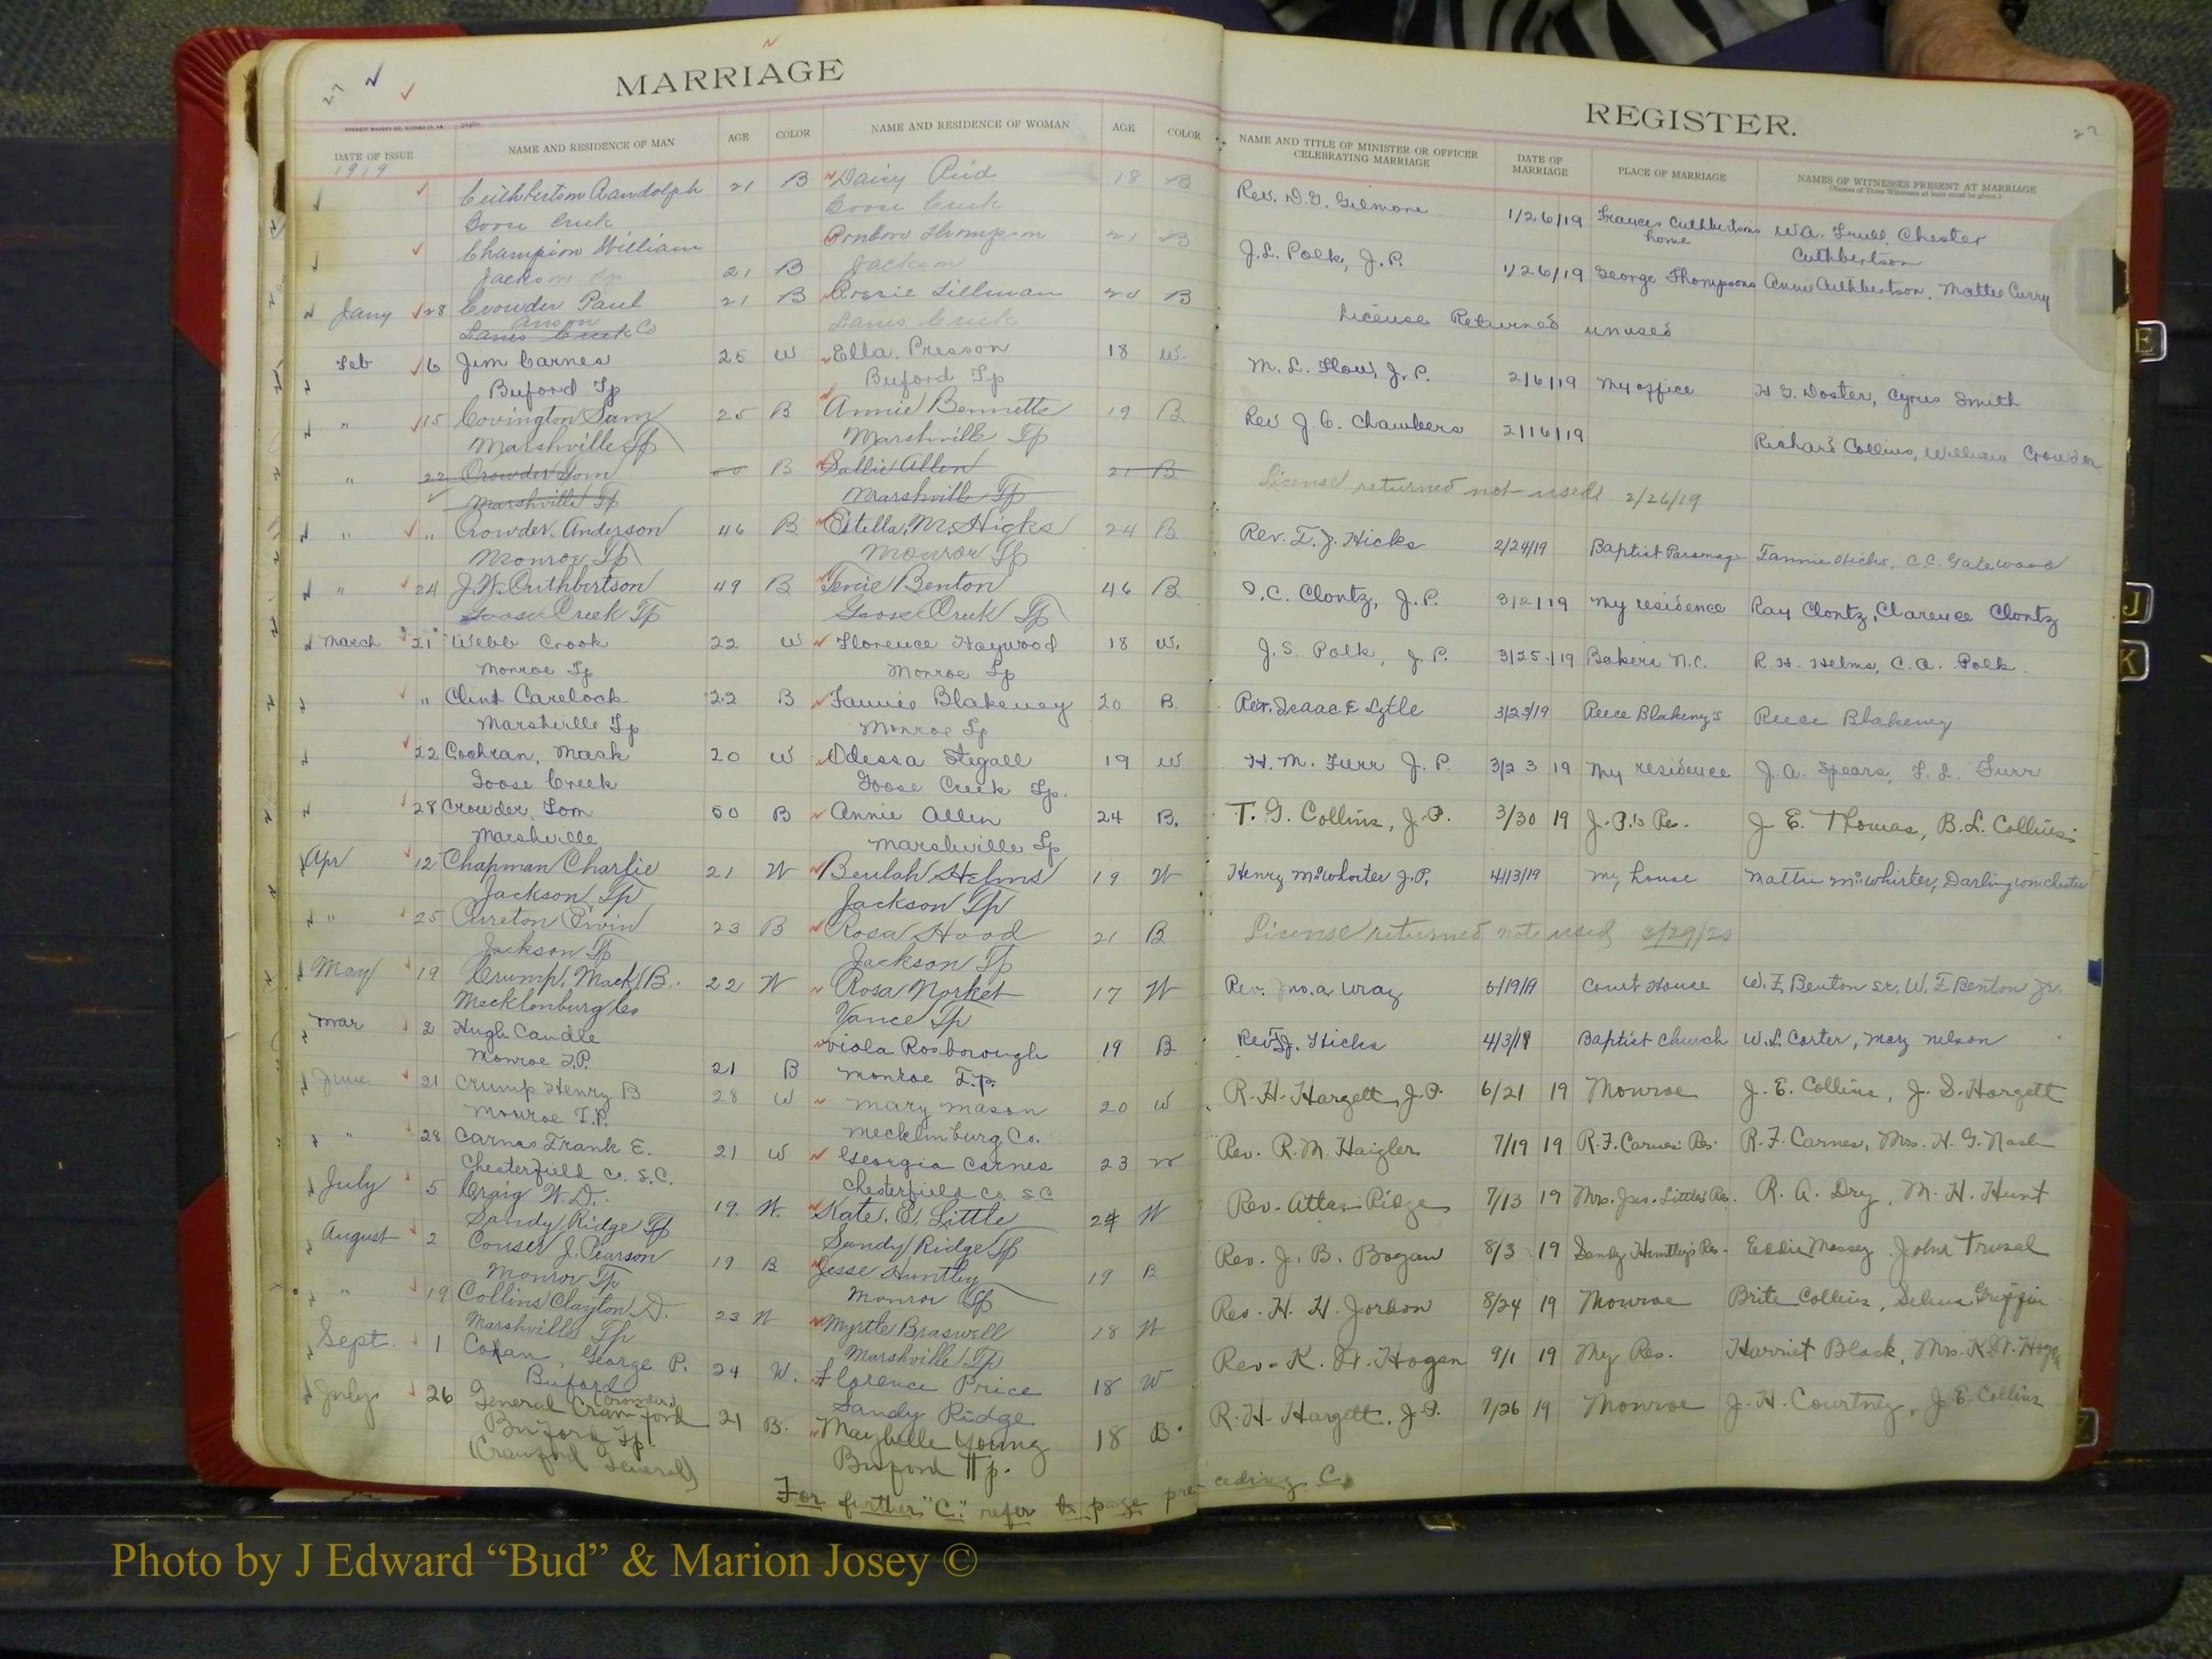 27
MARRIAGE
DATE OF ISSUE
NAME AND RESIDENCE OF MAN
AGE
COLOR
NAME AND RESIDENCE OF WOMAN
AGE
COLOR
1919
Cuthbertson Randolph 21 B Daisy Reid 18 B
Goose Creek Goose Creek
Champion William Thompson 21 B
Jackson Tp 21 B Jackson
Jany 28 Crowder Paul 21 B Tillman 20 B
Anson
Lanes Creek Co Lanes Creek
Feb 6 Jim Carnes 25 W Ella Presson 18 W.
Buford Tp Buford Tp
" 15 Covington Sam 25 B Annie Bennette 19 B
Marshville Tp Marshville Tp
" 22 Crowder Tom B Sallie Allen 21 B
Marshville Tp Marshville Tp
" " Crowder Anderson 46 B Estella M. Hicks 24 B
Monroe Tp Monroe Tp
" 24 J.W. Cuthbertson 49 B Benton 46 B
Goose Creek Tp Goose Creek Tp
March 21 Webb Crook 22 W Florence Haywood 18 W.
Monroe Tp Monroe Tp
" Clint Carelock 22 B Fannie Blakeney 20 B.
Marshville Tp Monroe Tp
22 Cochran, Mack 20 W Odessa Stegall 19 W
Goose Creek Goose Creek Tp.
28 Crowder, Tom 50 B Annie Allen 24 B.
Marshville Marshville Tp
Apr 12 Chapman Charlie 21 W Beulah Helms 19 W
Jackson Tp Jackson Tp
" 25 Cureton Ervin 23 B Rosa Hood 21 B
Jackson Tp Jackson Tp
May 19 Crump, Mack B. 22 W Rosa Norket 17 W
Mecklenburg Co Vance Tp
Mar 2 Hugh Caudle Viola Rosborough 19 B
Monroe T.P. 21 B Monroe T.P.
June 21 Crump Henry B 28 W Mary Mason 20 W
Monroe T.P. Mecklenburg Co.
" 28 Carnes Frank E. 21 W Georgia Carnes 23 W
Chesterfield Co. S.C. Chesterfield Co. S.C
July 5 Craig W.D. 19. W. Kate. E. Little 24 W
Sandy Ridge Tp Sandy Ridge Tp
August 2 Couser J. Pearson 19 B Jesse Huntley 19 B
Monroe Tp Monroe Tp
" 19 Collins Clayton D. 23 W Myrtle Braswell 18 W
Marshville Tp Marshville Tp
Sept. 1 George P. 24 W. Florence Price 18 W
Buford Sandy Ridge
(Crowder)
July 26 General Crawford 21 B. Maybelle Young 18 B.
Buford Tp. Buford Tp.
(Crawford General)
For further "C." refer to page preceding C.
REGISTER.
27
NAME AND TITLE OF MINISTER OR OFFICER
CELEBRATING MARRIAGE
DATE OF
MARRIAGE
PLACE OF MARRIAGE
NAMES OF WITNESSES PRESENT AT MARRIAGE
(Names of Three Witnesses at least must be given.)
Rev. D.G. Gilmore 1/26/19 Frances Cuthbertsons W.A. Trull, Chester
home Cuthbertson
J.L. Polk, J.P. 1/26/19 George Thompsons Annie Cuthbertson, Mattie Curry
License Returned unused
M. L. Flow, J.P. 2/6/19 My office H G. Doster, Cyrus Smith
Rev J.C. Chambers 2/16/19 Richard Collins, William Crowder
License returned not used 2/26/19
Rev. T.J. Hicks 2/24/19 Baptist Parsonage Fannie Hicks, C.C. Gatewood
I.C. Clontz, J.P. 3/2/19 My residence Ray Clontz, Clarence Clontz
J.S. Polk, J.P. 3/25/19 Bakers N.C. R.H. Helms, C.A. Polk.
Rev. Isaac E Lytle 3/23/19 Reece Blakeny's Reece Blakeney
H. M. Furr J.P. 3/23 19 My residence J.A. Spears, F.L. Furr
T. G. Collins, J.P. 3/30 19 J.P.'s Res. J E. Thomas, B.L. Collins
Henry McWhorter J.P. 4/13/19 my house Mattie McWhirter, Darling Winchester
License returned not used 3/29/20
Rev. Jno. A. Wray 5/19/19 Court House W.F. Benton Sr. W.F Benton Jr.
Rev T.J. Hicks 4/3/19 Baptist Church W.L. Carter, Mary Nelson
R.H. Hargett, J.P. 6/21 19 Monroe J. E. Collins, J. S. Hargett
Rev. R.M. Haigler 7/19 19 R.F. Carnes Res. R.F. Carnes, Mrs. H. G. Nash
Rev. Atlas Ridge 7/13 19 Mrs. Jas. Littles Res. R. A. Dry, M. H. Hunt
Rev. J. B. Bogan 8/3 19 Sandy Huntley's Res. Eddie Massey John Truzal
Rev. H. H. Jordon 8/24 19 Monroe Brite Collins, Selma Griffin
Rev. K. W. Hogan 9/1 19 My Res. Harriet Black, Mrs. K.W. Hogan
R.H. Hargett, J.P. 7/26 19 Monroe J.H. Courtney, J E. Collins
E
J
K
Photo by J Edward “Bud” & Marion Josey ©